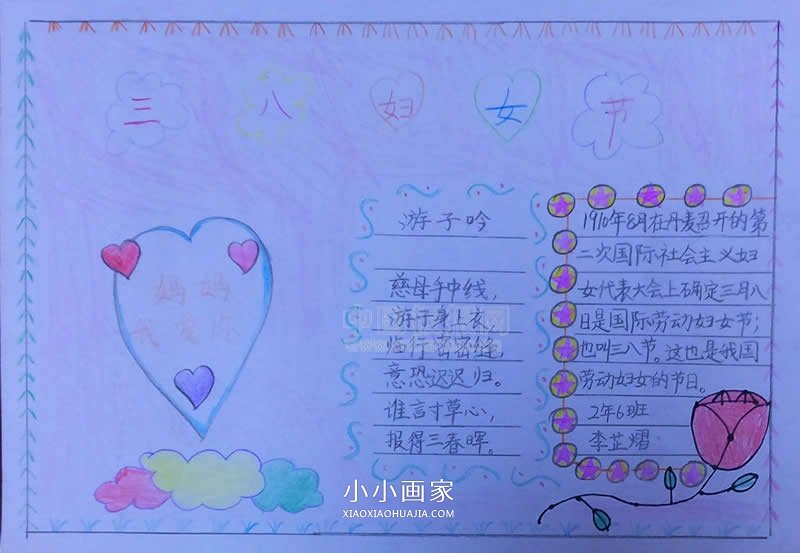 三八妇女节
妈妈
我爱你
游子吟
慈母手中线，
游子身上衣，
临行密密缝，
意恐迟迟归。
谁言寸草心，
报得三春晖。
1910年8月在丹麦召开的第
二次国际社会主义妇
女代表大会上确定三月八
日是国际劳动妇女节；
也叫三八节。这也是我国
劳动妇女的节日。
2年6班
李芷熠
小小画家
XIAOXIAOHUAJIA.COM